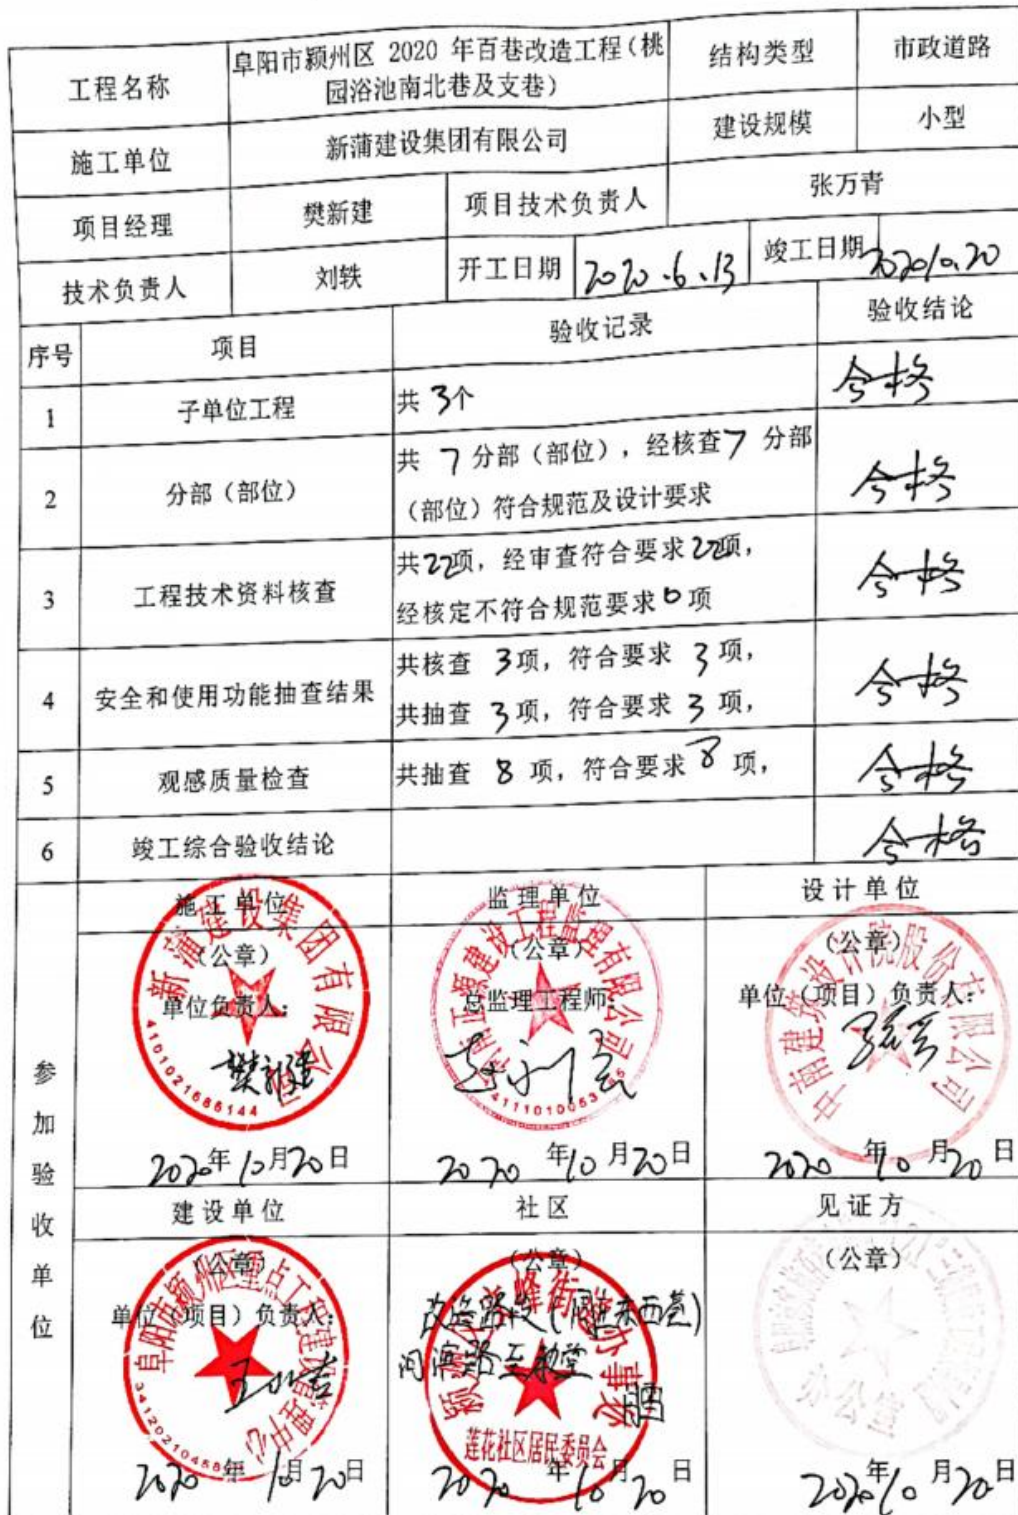 工程名称
阜阳市颍州区 2020 年百巷改造工程(桃
园浴池南北巷及支巷)
结构类型
市政道路
施工单位
新蒲建设集团有限公司
建设规模
小型
项目经理
樊新建
项目技术负责人
张万青
技术负责人
刘轶
开工日期
2020.6.13
竣工日期
2020.10.20
序号
项目
验收记录
验收结论
1
子单位工程
共 3个
合格
2
分部(部位)
共 7 分部(部位),经核查7 分部
(部位)符合规范及设计要求
合格
3
工程技术资料核查
共22项,经审查符合要求22项,
经核定不符合规范要求0项
合格
4
安全和使用功能抽查结果
共核查 3项,符合要求 3 项,
共抽查 3项,符合要求 3 项,
合格
5
观感质量检查
共抽查 8 项,符合要求 8 项,
合格
6
竣工综合验收结论
合格
参加验收单位
施工单位
(公章)
单位负责人:
樊新建
新蒲建设集团有限公司
4101021686144
2020年10月20日
监理单位
(公章)
总监理工程师:
2020 年10月20日
设计单位
(公章)
单位(项目)负责人:
中南建筑设计院股份有限公司
2020 年10月20日
建设单位
(公章)
单位(项目)负责人:
阜阳市颍州区重点工程建设管理中心
2020 年10月20日
社区
(公章)
莲花社区居民委员会
2020 年10月20日
见证方
(公章)
办公室
2020年10月20日